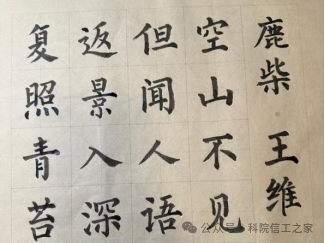 鹿柴 王维
空山不见
但闻人语
返景入深
复照青苔
公众号 科院信工之家